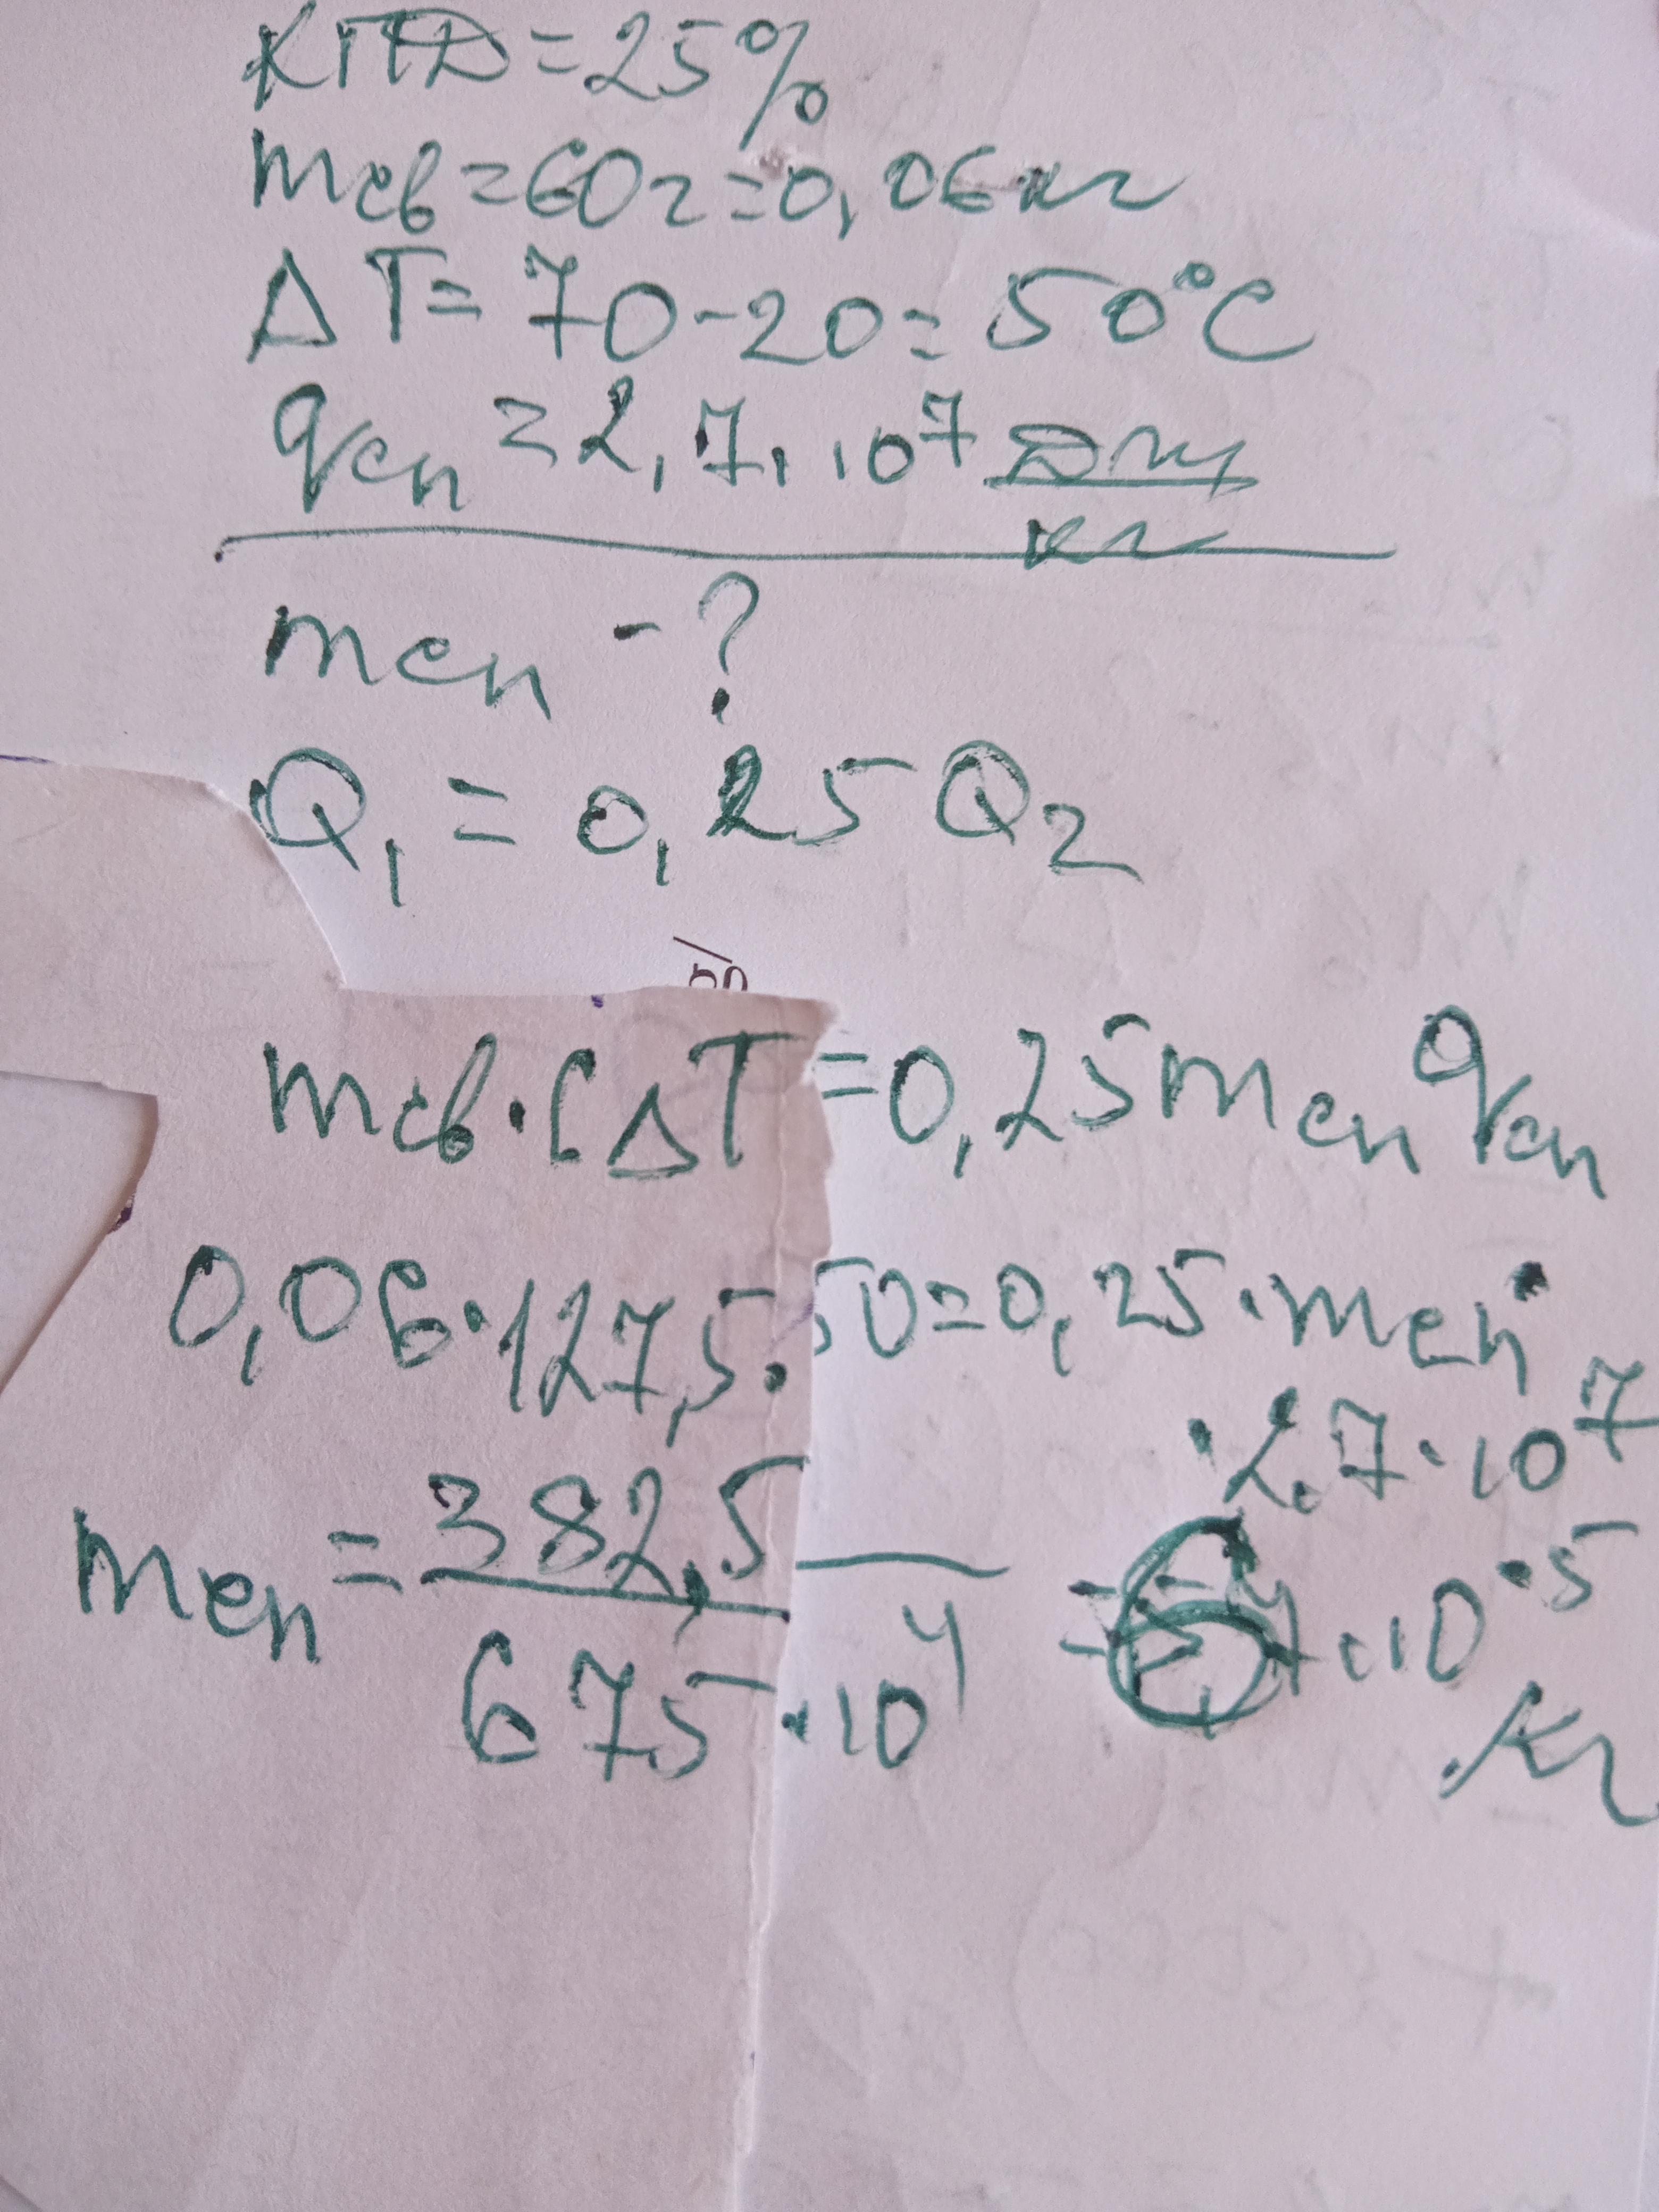 КПД=25%
mсв=60г=0,06кг
ΔT=70-20=50°C
qсп=2,7·10⁷ Дж/кг
mсп-?
Q₁=0,25Q₂
mсв·CΔT=0,25mсп qсп
0,06·127,5·50=0,25·mсп·
·2,7·10⁷
mсп=382,5/675·10⁴ = ·10⁻⁵
кг